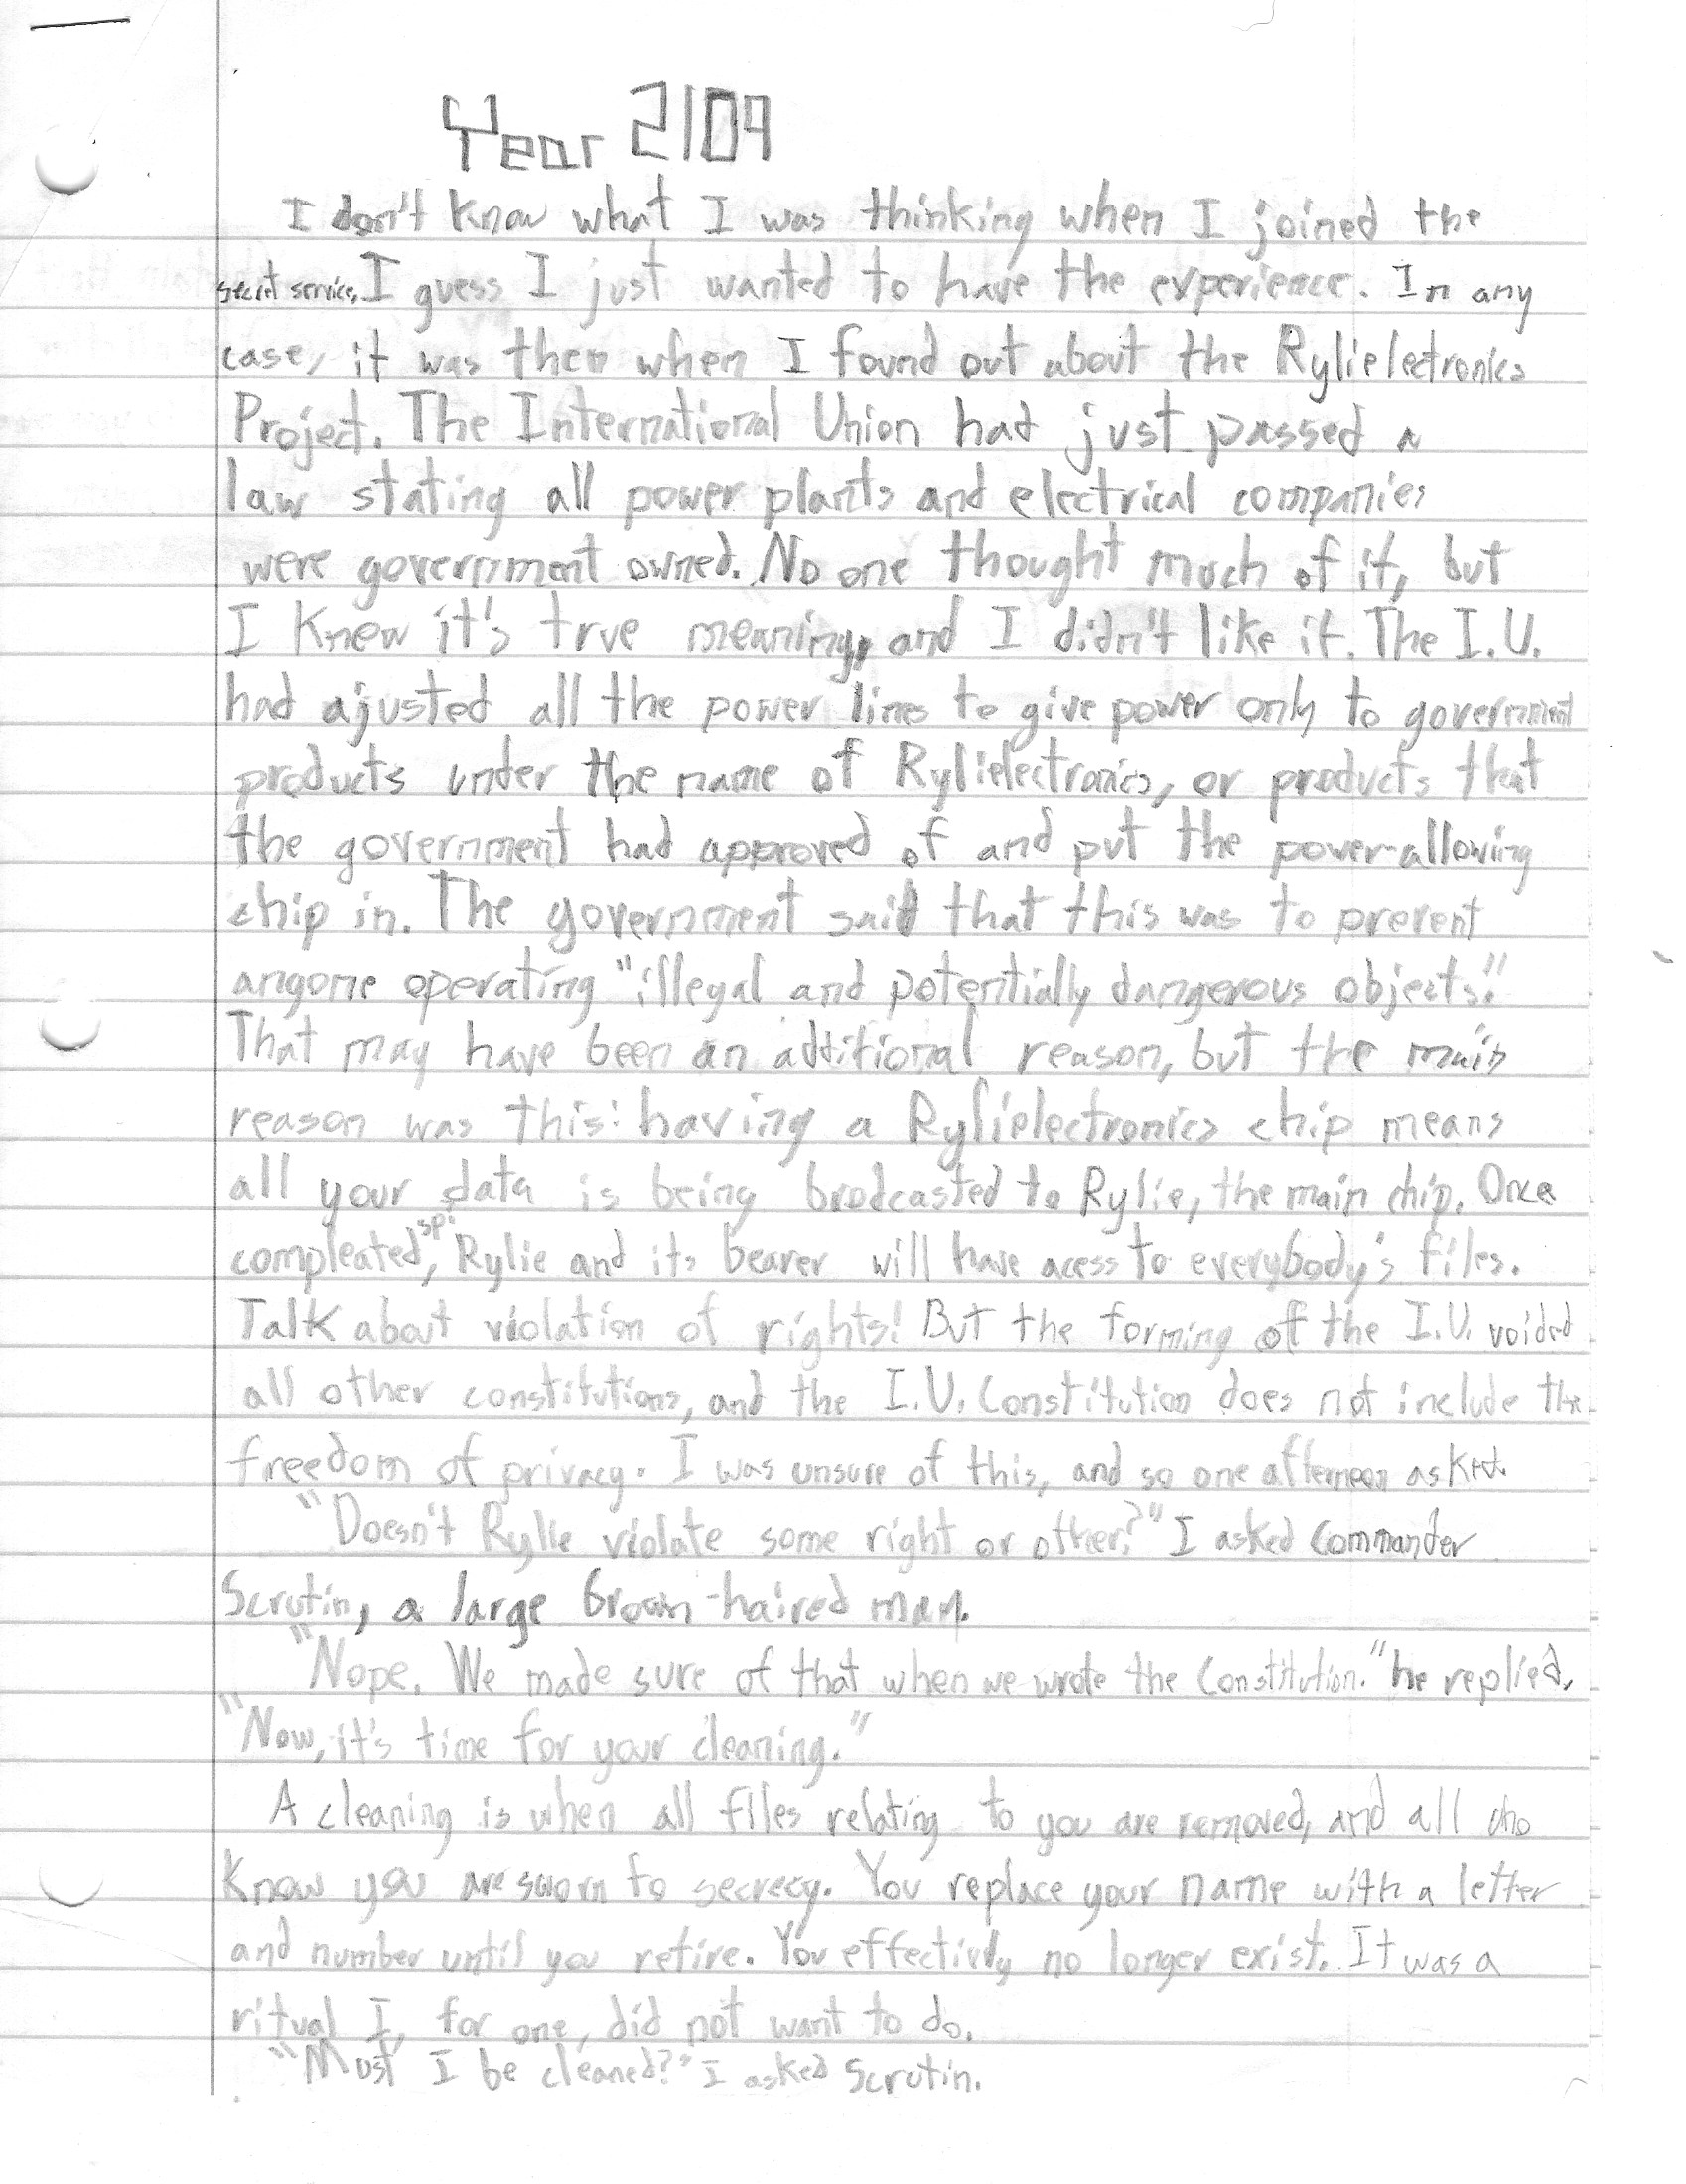 Year 2109
I don't know what I was thinking when I joined the
secret service, I guess I just wanted to have the experience. In any
case, it was then when I found out about the Rylielectronics
Project. The International Union had just passed a
law stating all power plants and electrical companies
were government owned. No one thought much of it, but
I knew it's true meaning, and I didn't like it. The I.U.
had ajusted all the power lines to give power only to government
products under the name of Rylielectronics, or products that
the government had approved of and put the power-allowing
chip in. The government said that this was to prevent
anyone operating "illegal and potentially dangerous objects."
That may have been an additional reason, but the main
reason was this: having a Rylielectronics chip means
all your data is being brodcasted to Rylie, the main chip. Once
compleated, sp. Rylie and its bearer will have acess to everybody's files.
Talk about violation of rights! But the forming of the I.U. voided
all other constitutions, and the I.U. Constitution does not include the
freedom of privacy. I was unsure of this, and so one afternoon asked.
"Doesn't Rylie violate some right or other?" I asked Commander
Scrutin, a large brown-haired man.
"Nope. We made sure of that when we wrote the Constitution." he replied,
"Now, it's time for your cleaning."
A cleaning is when all files relating to you are removed, and all who
know you are sworn to secrecy. You replace your name with a letter
and number until you retire. You effectively no longer exist. It was a
ritual I, for one, did not want to do.
"Must I be cleaned?" I asked Scrutin.